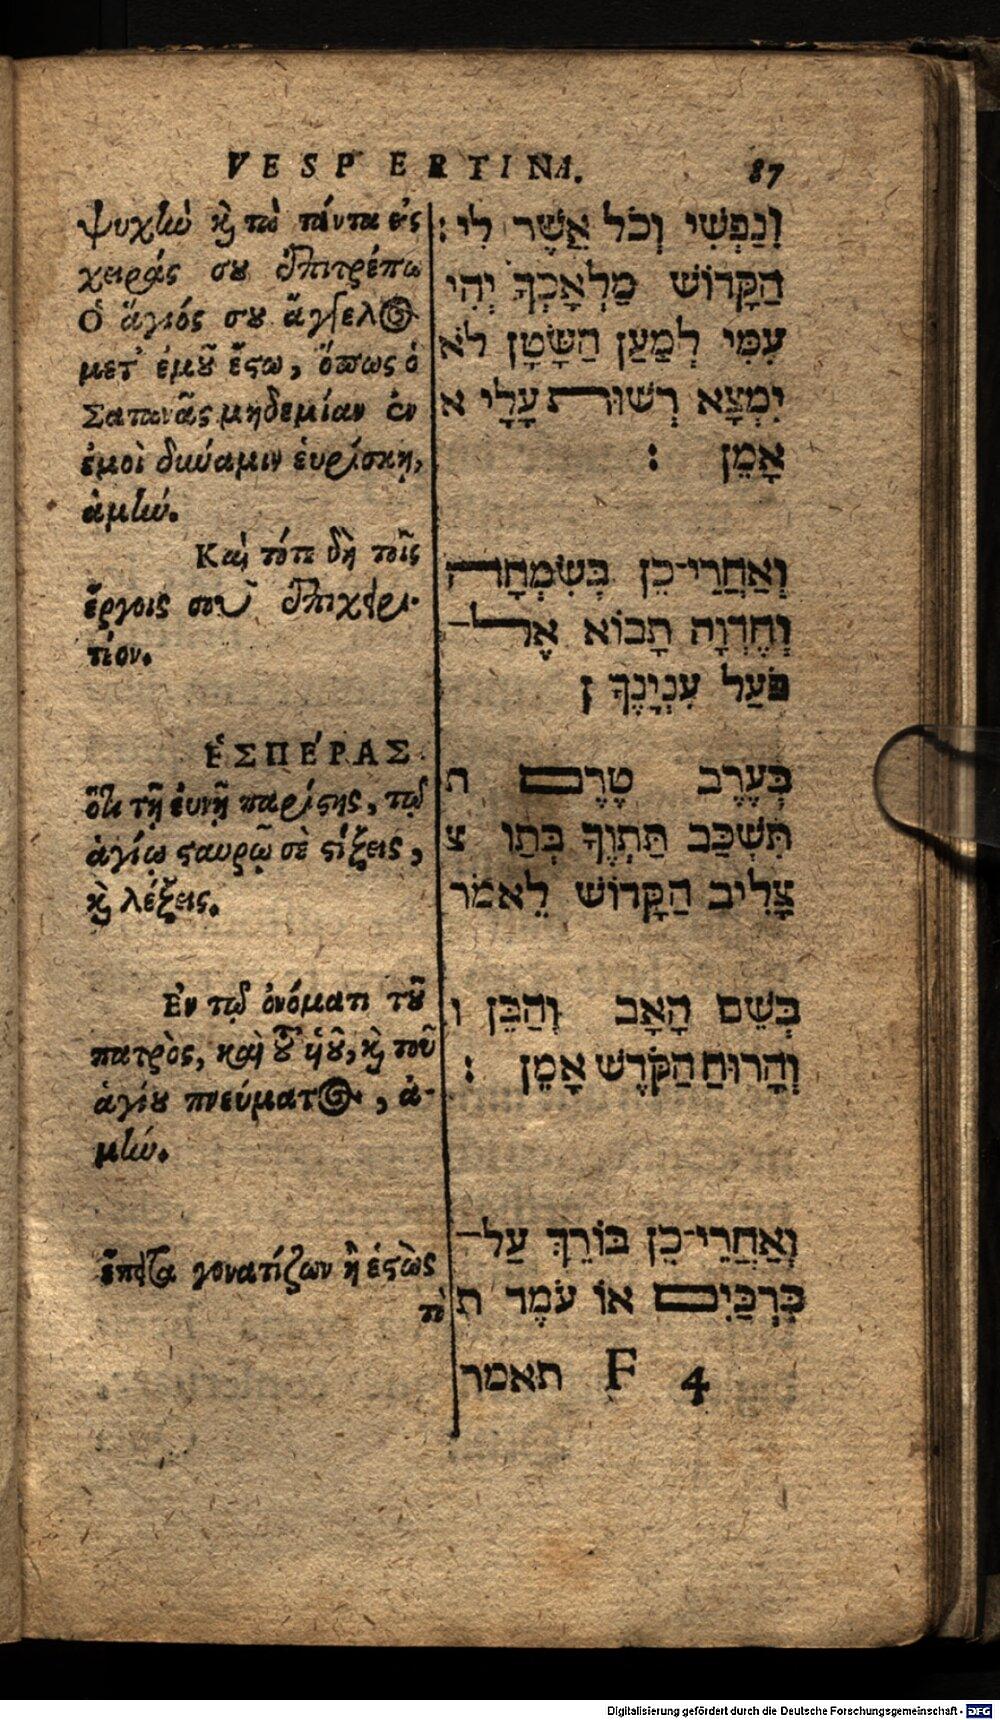 VESPERTINA. 87
ψυχὴν καὶ τὰ πάντα εἰς
χειράς σου ἐπιτρέπω
Ὁ ἅγιός σου ἄγγελος
μετ' ἐμοῦ ἔστω, ὅπως ὁ
Σατανᾶς μηδεμίαν ἐν
ἐμοὶ δύναμιν εὑρίσκῃ,
ἀμήν.
Καὶ τότε δὴ τοῖς
ἔργοις σοῦ ἐπιχείρι-
τέον.
ἙΣΠΈΡΑΣ
ὅτε τῇ εὐνῇ παρίσης, τῷ
ἁγίῳ σταυρῷ σὲ στίξεις,
καὶ λέξεις.
Ἐν τῷ ὀνόματι τοῦ
πατρὸς, καὶ τοῦ υἱοῦ, καὶ τοῦ
ἁγίου πνεύματος, ἀ-
μήν.
ἔπειτα γονατίζων ἢ ἑστὼς
τὸ
וְנַפְשִׁי וְכֹל אֲשֶׁר לִי :
הַקָּדוֹשׁ מַלְאָכְךָ יְהִי
עִמִּי לְמַעַן הַשָּׂטָן לֹא
יִמְצָא רְשׁוּת עָלָי א
אָמֵן :
וְאַחֲרֵי־כֵן בְּשִׂמְחָה
וְחֶדְוָה תָבוֹא אֶל־
פֹּעַל עִנְיָנֶךָ ן
בְּעֶרֶב טֶרֶם ת
תִּשְׁכַּב תַּתְוֶךָ בְּתַו צ
צָלִיב הַקָּדוֹשׁ לֵאמֹר
בְּשֵׁם הָאָב וְהַבֵּן ו
וְהָרוּחַ הַקֹּדֶשׁ אָמֵן :
וְאַחֲרֵי־כֵן בּוֹרֵךְ עַל־
בִּרְכַּיִם אוֹ עֹמֶד ת
F 4 תאמר
Digitalisierung gefördert durch die Deutsche Forschungsgemeinschaft - DFG